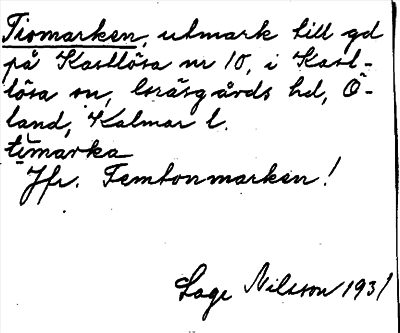 Tiomarken, utmark till gd
på Kastlösa nr 10, i Kast-
lösa sn, Gräsgårds hd, Ö-
land, Kalmar l.
timarka
Jfr. Femtonmarken!
Lage Nilsson 1931